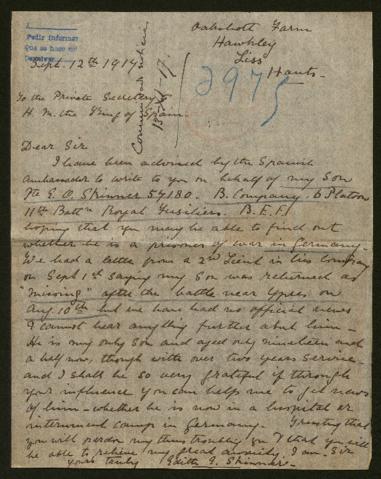 Pedir informes
Oakshott Farm
Hawkley
Liss
Hants.
Sept. 12th 1917
2975
To the Private Secretary
H. M. the King of Spain
Dear Sir
I have been advised by the Spanish
Ambassador to write to you on behalf of my Son
Pte E. O. Skinner 54180. B. Company. 6 Platoon
11th Battn Royal Fusiliers. B.E.F.
hoping that you may be able to find out
whether he is a prisoner of war in Germany.
We had a letter from a 2nd Lieut in his Company
on Sept 1st saying my Son was returned as
"missing" after the battle near Ypres on
Aug. 10th but we have had no official news
I cannot hear anything further about him—
He is my only Son and aged only nineteen and
a half now, though with over two years service
and I shall be so very grateful if through
your influence you can help me to get news
of him—whether he is now in a hospital or
internment camp in Germany. Trusting that
you will pardon my thus troubling you & that you will
be able to relieve my great anxiety. I am Sir
yours truly Edith G. Skinner—